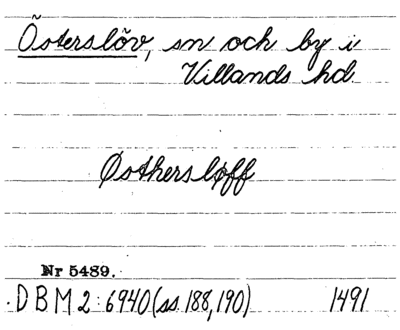 Österslöv, sn och by i
Villands hd
Østhersløff
Nr 5489.
DBM 2:6940(ss 188,190) 1491